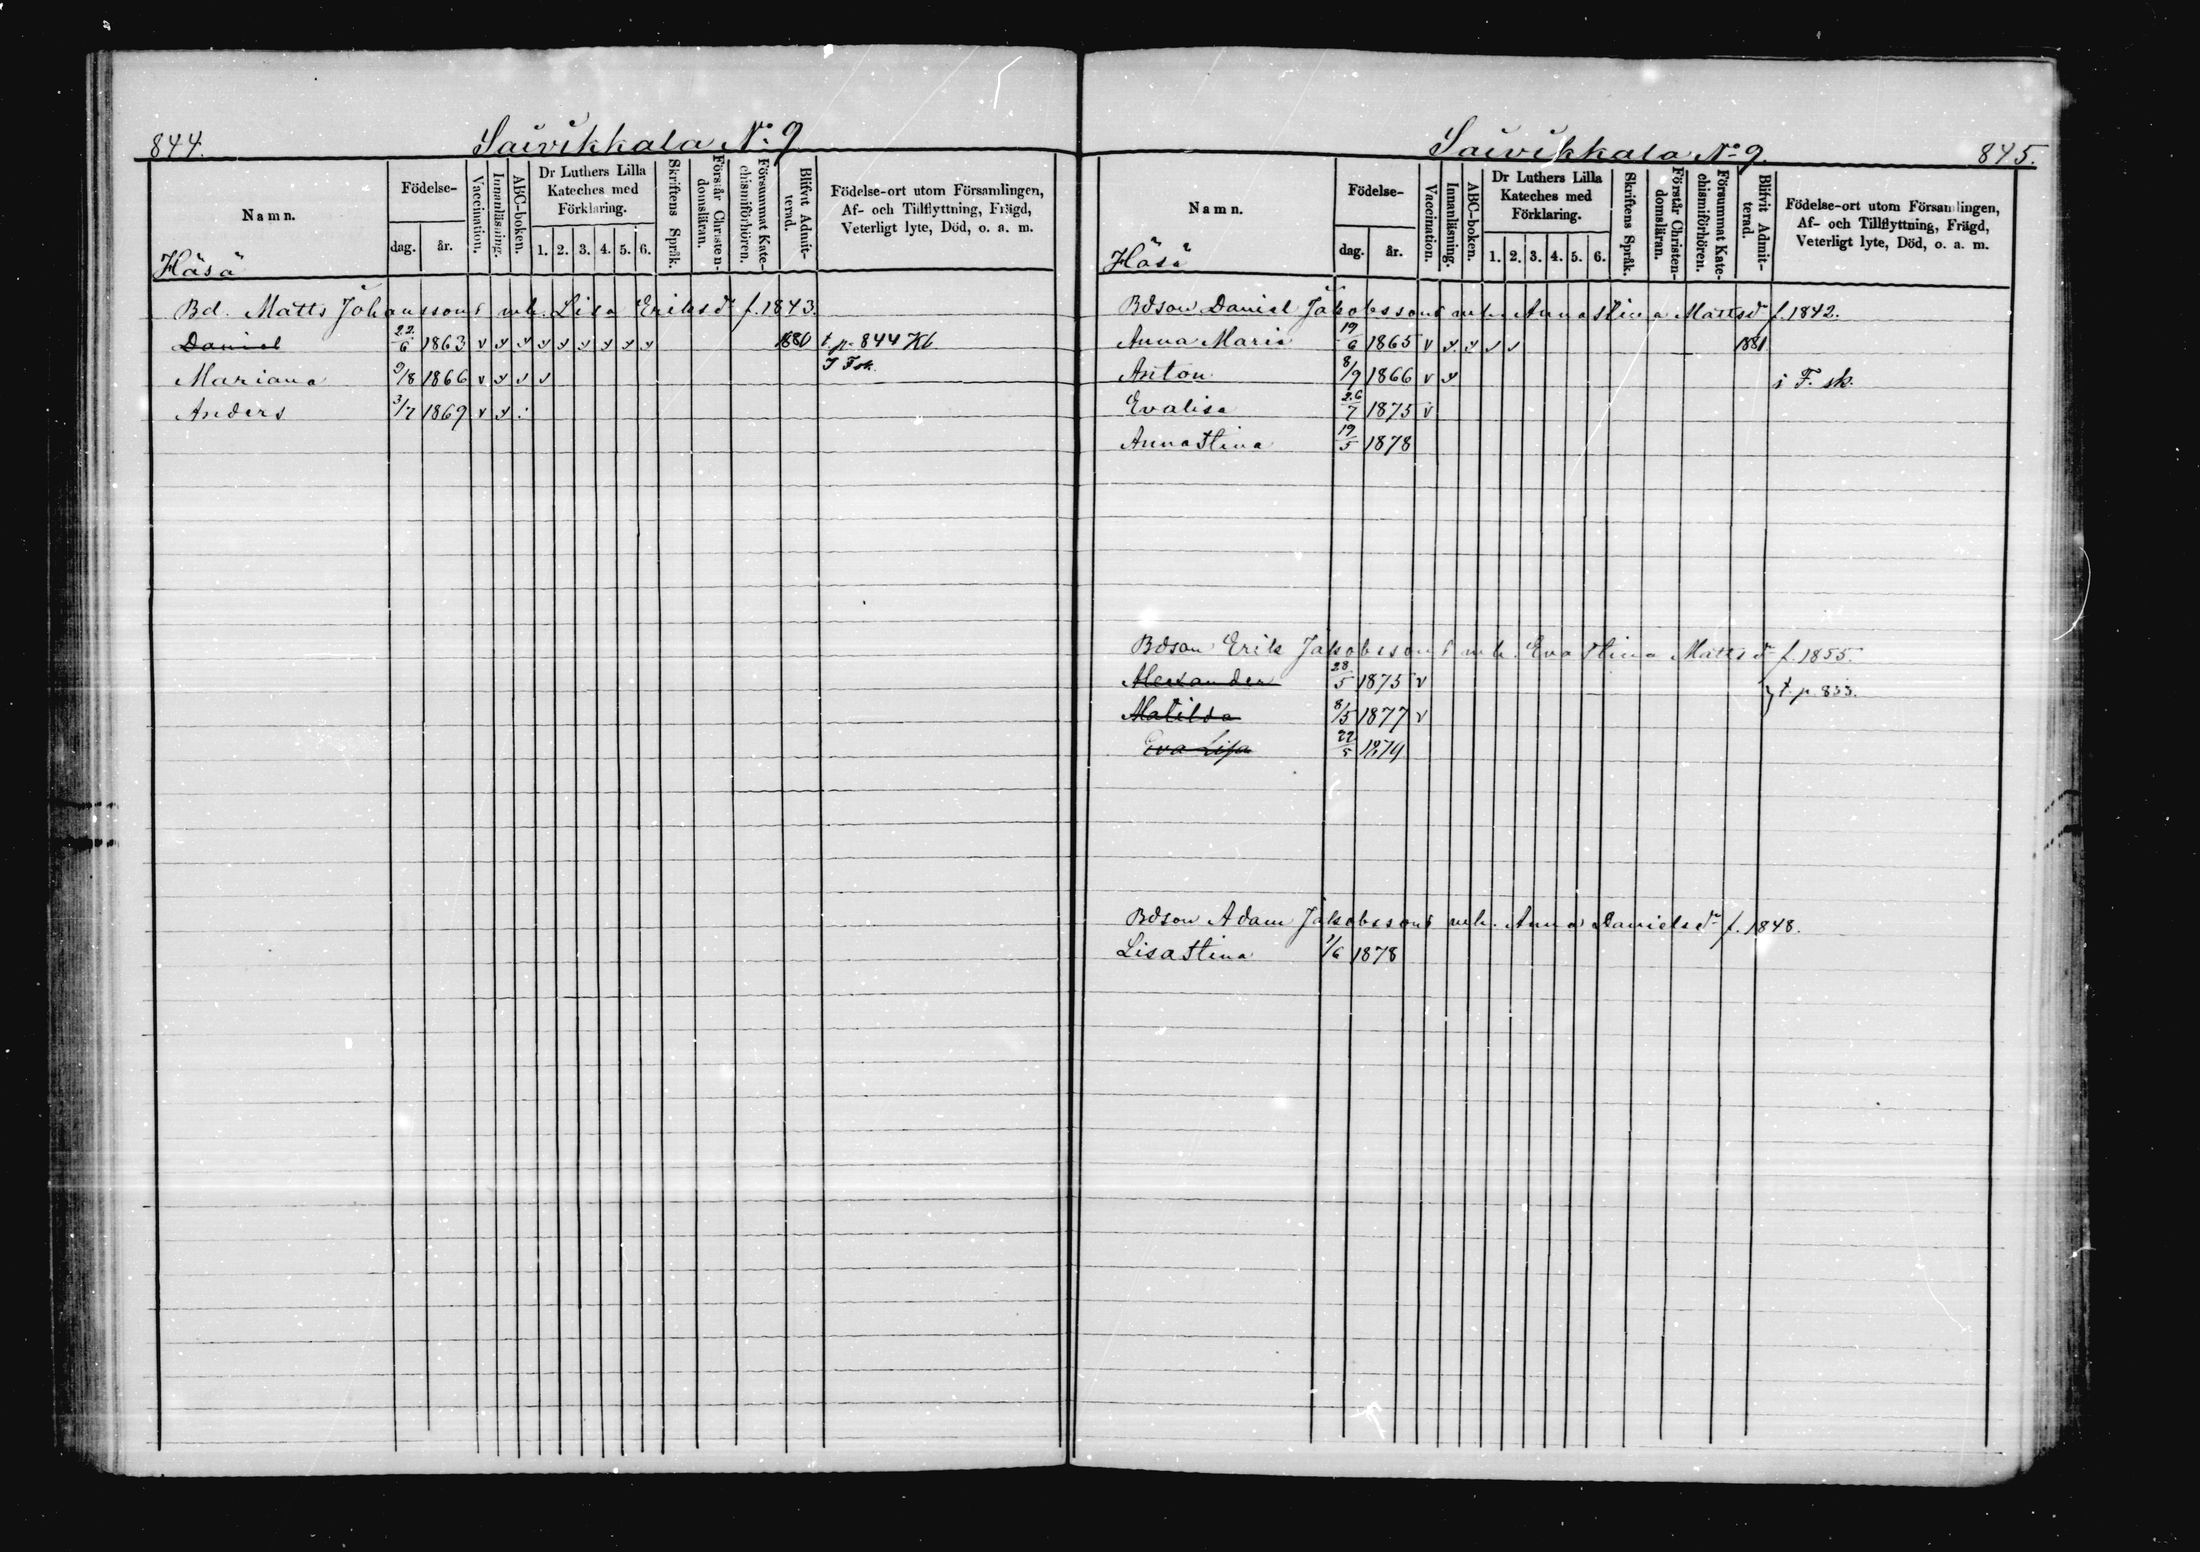 844.
Saivikkala No 9
Namn.
Födelse-
dag. år.
Vaccination.
Innanläsning.
ABC-boken.
Dr Luthers Lilla
Kateches med
Förklaring.
1. 2. 3. 4. 5. 6.
Skriftens Språk.
Förstår Christen-
domsläran.
Försummat Kate-
chismiförhören.
Blifvit Admit-
terad.
Födelse-ort utom Församlingen,
Af- och Tillflyttning, Frägd,
Veterligt lyte, Död, o. a. m.
Häsä
Bd. Matts Johanssons mh. Lisa Eriksdr f. 1843.
Daniel 22/6 1863 v v v v v v v v v 1880 t. p. 844 Kb
Mariana 9/8 1866 v v v v
Anders 3/7 1869 v v
Saivikkala No 9.
845.
Namn.
Födelse-
dag. år.
Vaccination.
Innanläsning.
ABC-boken.
Dr Luthers Lilla
Kateches med
Förklaring.
1. 2. 3. 4. 5. 6.
Skriftens Språk.
Förstår Christen-
domsläran.
Försummat Kate-
chismiförhören.
Blifvit Admit-
terad.
Födelse-ort utom Församlingen,
Af- och Tillflyttning, Frägd,
Veterligt lyte, Död, o. a. m.
Häsä
Bdson Daniel Jakobssons mh. Anna Stina Mattsdr f. 1842.
Anna Maria 19/6 1865 v v v v v 1881
Anton 8/9 1866 v v i F. sk.
Evalisa 26/7 1875 v
Anna Stina 19/5 1878
Bdson Erik Jakobssons mh. Eva Stina Mattsdr f. 1855.
Alexander 28/5 1875 v t. p. 833.
Matilda 8/5 1877 v
Eva Lisa 22/5 1879
Bdson Adam Jakobssons mh. Anna Danielsdr f. 1848.
Lisa Stina 1/6 1878